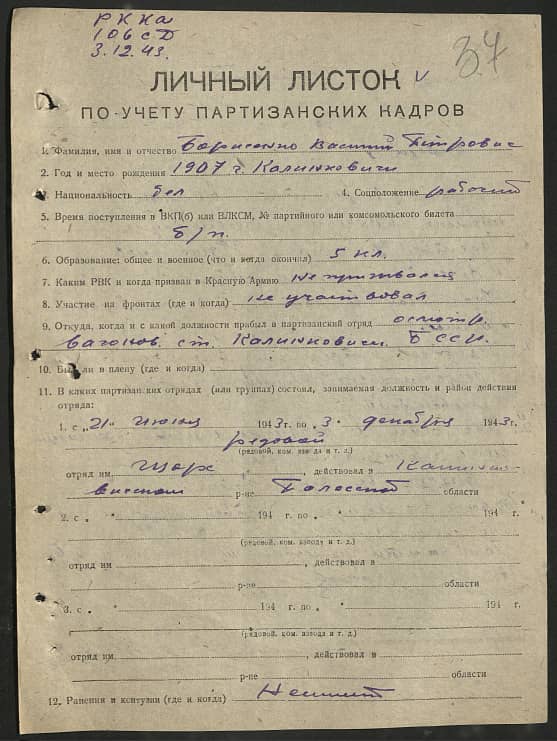 РККА
106 сД
3.12.43.
37
ЛИЧНЫЙ ЛИСТОК v
ПО УЧЕТУ ПАРТИЗАНСКИХ КАДРОВ
1. Фамилия, имя и отчество Борисенко Василий Петрович
2. Год и место рождения 1907 г. Калинковичи
3. Национальность бел 4. Соцположение рабочий
5. Время поступления в ВКП(б) или ВЛКСМ, № партийного или комсомольского билета
б/п.
6. Образование: общее и военное (что и когда окончил) 5 кл.
7. Каким РВК и когда призван в Красную Армию не призвался
8. Участие на фронтах (где и когда) не участвовал
9. Откуда, когда и с какой должности прибыл в партизанский отряд осмотр.
вагонов. ст. Калинковичи. БССР.
10. Был ли в плену (где и когда)
11. В каких партизанских отрядах (или группах) состоял, занимаемая должность и район действия
отряда:
1. с „21" июня 1943 г. по „3. декабря 1943 г.
рядовой
(рядовой, ком. взвода и т. д.)
отряд им Щорс , действовал в Калинко-
вичском р-не Полесской области
2. с „ " 194 г. по „ " 194 г.
(рядовой, ком. взвода и т. д.)
отряд им , действовал в
р-не области
3. с „ " 194 г. по „ " 194 г.
(рядовой, ком. взвода и т. д.)
отряд им. , действовал в
р-не области
12. Ранения и контузии (где и когда)